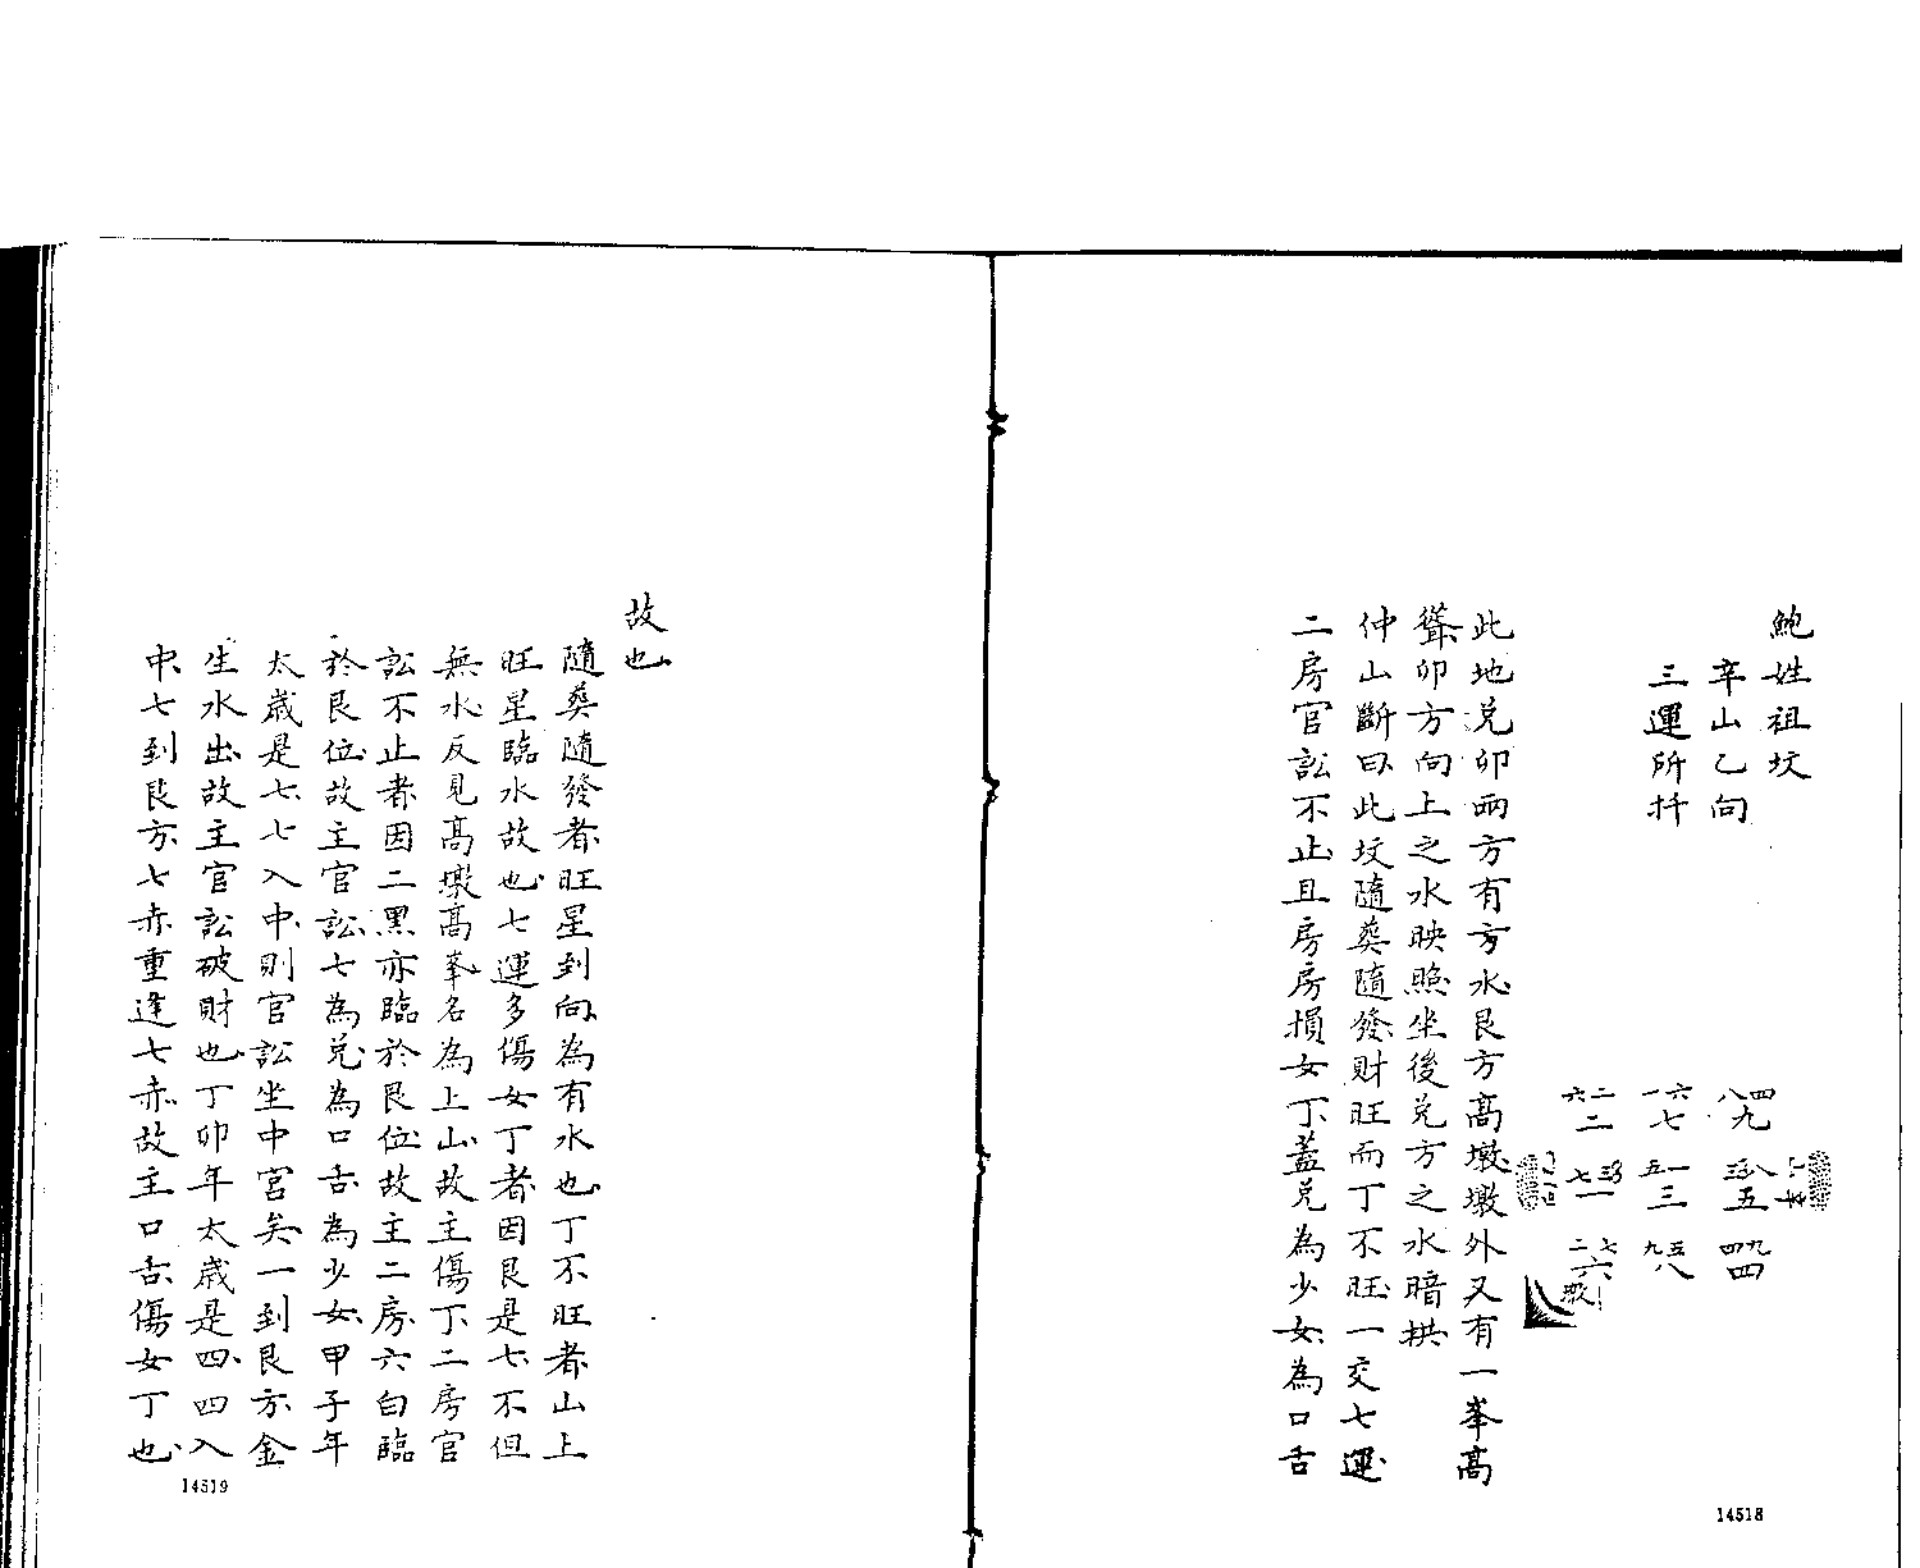 鮑姓祖坟
辛山乙向
三運所扦
八四 九
八 五
四九 四
一六 七
五一 三
九五 八
六二 二
七 一
二七 六
墩
此地兌卯兩方有方水艮方高墩墩外又有一峯高
聳卯方向上之水映照坐後兌方之水暗拱
仲山斷曰此坟隨葵隨發財旺而丁不旺一交七運
二房官訟不止且房房損女丁蓋兌為少女為口舌
14518
故也
隨葵隨發者旺星到向為有水也丁不旺者山上
旺星臨水故也七運多傷女丁者因艮是七不但
無水反見高墩高峯名為上山故主傷丁二房官
訟不止者因二黑亦臨於艮位故主二房六白臨
於艮位故主官訟七為兌為口舌為少女甲子年
太歲是七七入中則官訟坐中宮矣一到艮方金
生水出故主官訟破財也丁卯年太歲是四四入
中七到艮方七赤重逢七赤故主口舌傷女丁也
14519